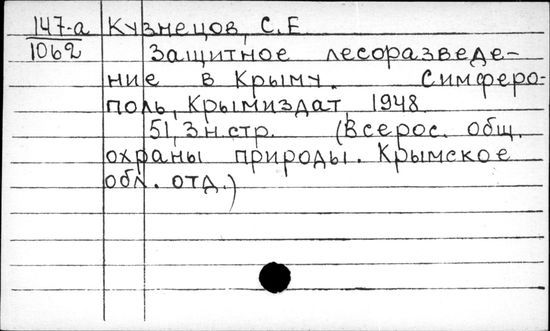 147-а Кузнецов, С.Е.
1062 Защитное лесоразведе-
ние в Крыму. Симферо-
поль, Крымиздат, 1948
51, 3 н.стр. (Всерос. общ.
охраны природы. Крымское
обл. отд.)